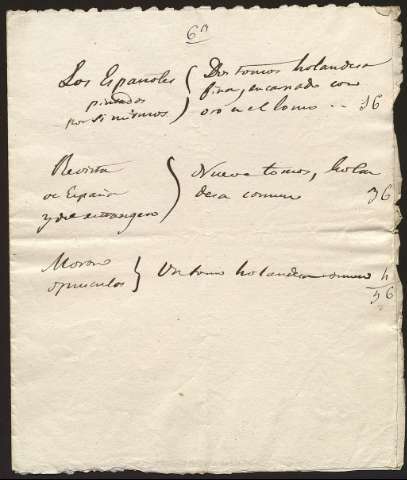 6ª
Los Españoles
pintados
por si mismos
Dos tomos holandesa
fina, encarnado con
oro en el lomo .. 16
Revista
de España
y del estrangero
Nueve tomos, holan
desa comun 36
Moreno
opusculos
Un tomo holandesa comun 4
56